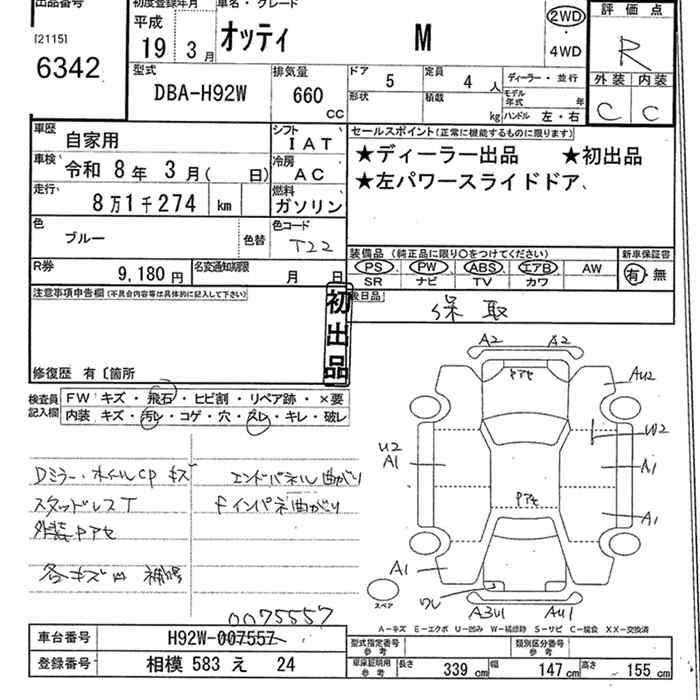 出品番号
[2115]
6342
初度登録年月
平成
19 3月
車名・グレード
オッティ M
2WD
・
4WD
評価点
R
外装 内装
C C
型式
DBA-H92W
排気量
660
CC
ドア 5
定員 4 人
ディーラー・並行
形状
積載 kg
モデル年式 年
ハンドル 左・右
車歴 自家用
シフト IAT
車検 令和 8年 3月( 日)
冷房 AC
走行 8万1千274 km
燃料 ガソリン
色 ブルー
色替
色コード T22
R券 9,180円
名変通知期限 月 日
セールスポイント(正常に機能するものに限ります)
★ディーラー出品 ★初出品
★左パワースライドドア、
装備品 (純正品に限り○をつけてください)
PS PW ABS エアB AW
SR ナビ TV カワ
新車保証書
有・無
後日品
保 取
注意事項申告欄(不具合内容等は具体的に記入して下さい)
初出品
修復歴 有〔箇所
検査員記入欄
FW キズ・飛石・ヒビ割・リペア跡・×要
内装 キズ・汚レ・コゲ・穴・スレ・キレ・破レ
Dミラー・ホイルCP キズ
スタッドレスT
外装アアセ
各キズ凹 補修
エンドパネル曲がり
Fインパネ曲がり
A2 A2
アアセ
AU2
W2
U2
A1
A1
アアセ
A1
A1
ワレ
A3U1 AU1
スペア
A-キズ E-エクボ U-凹み W-補修跡 S-サビ C-腐食 XX-交換済
0075557
車台番号 H92W-007557
登録番号 相模 583 え 24
型式指定番号 参考
類別区分番号 参考
車庫証明用 参考
長さ 339 cm 幅 147 cm 高さ 155 cm